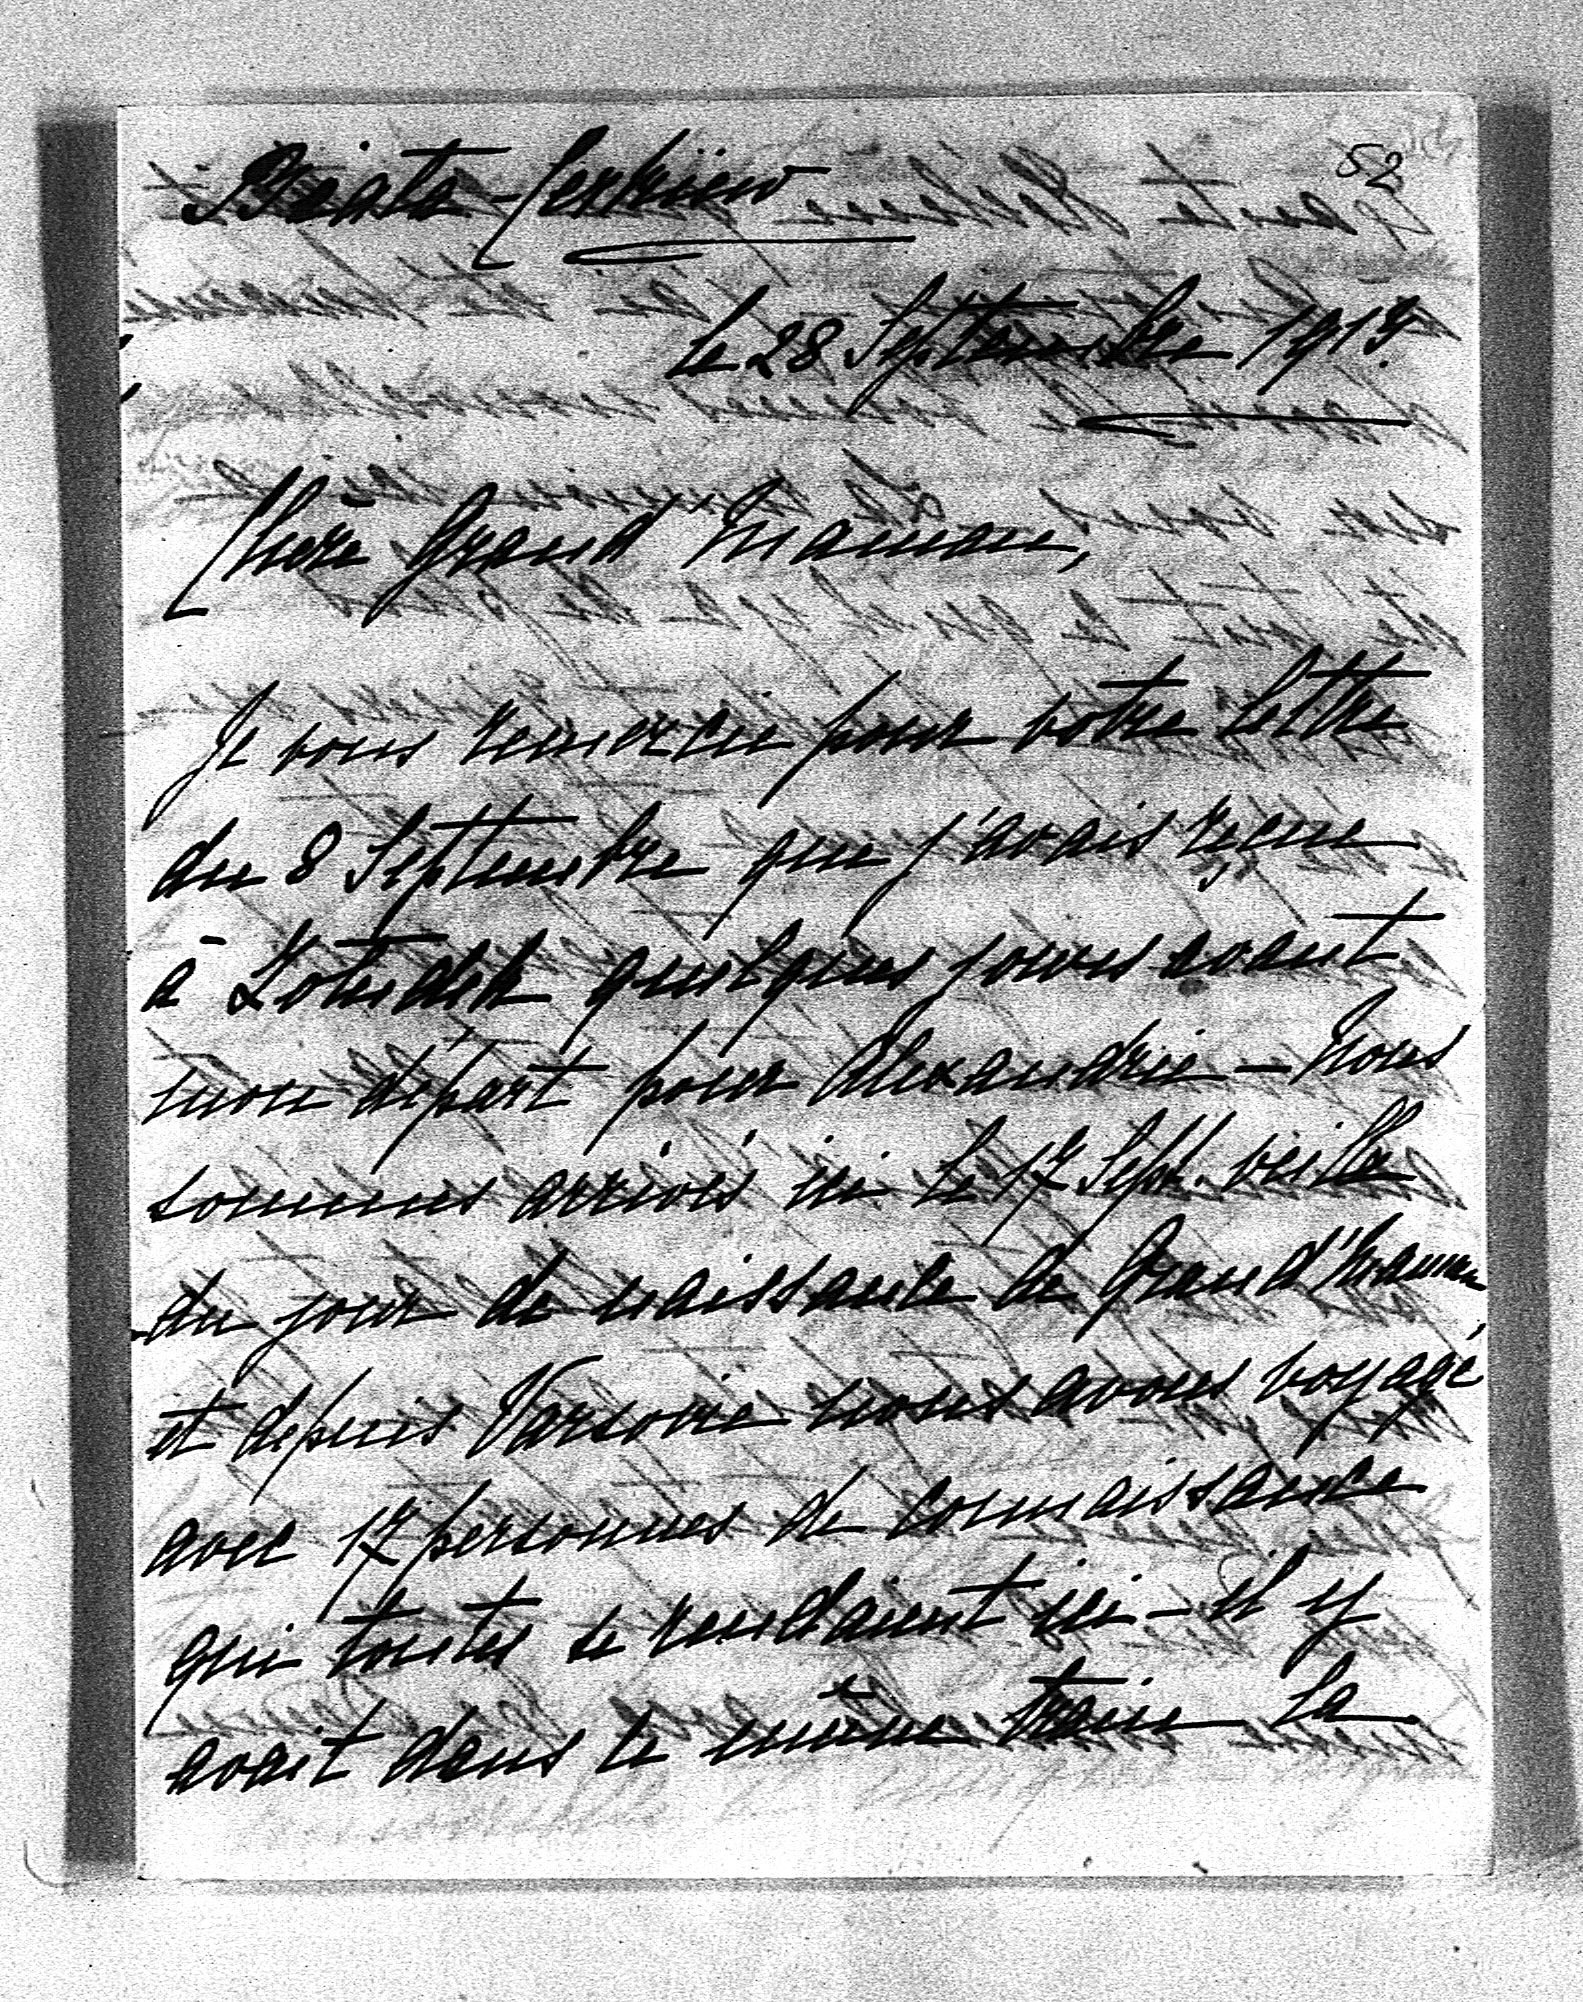 52
Biala-Cerkiew
le 28 Septembre 1913.
Chère Grand'Maman,
Je vous remercie pour votre lettre
du 8 Septembre que j'avais reçue
à quelques jours avant
mon départ pour Alexandrie – Nous
sommes arrivés ici le 17 Sept. veille
du jour de naissance de Grand'Maman
et depuis Varsovie nous avons voyagé
avec 17 personnes de connaissance
qui toutes se rendaient ici – il y
avait dans le même train la